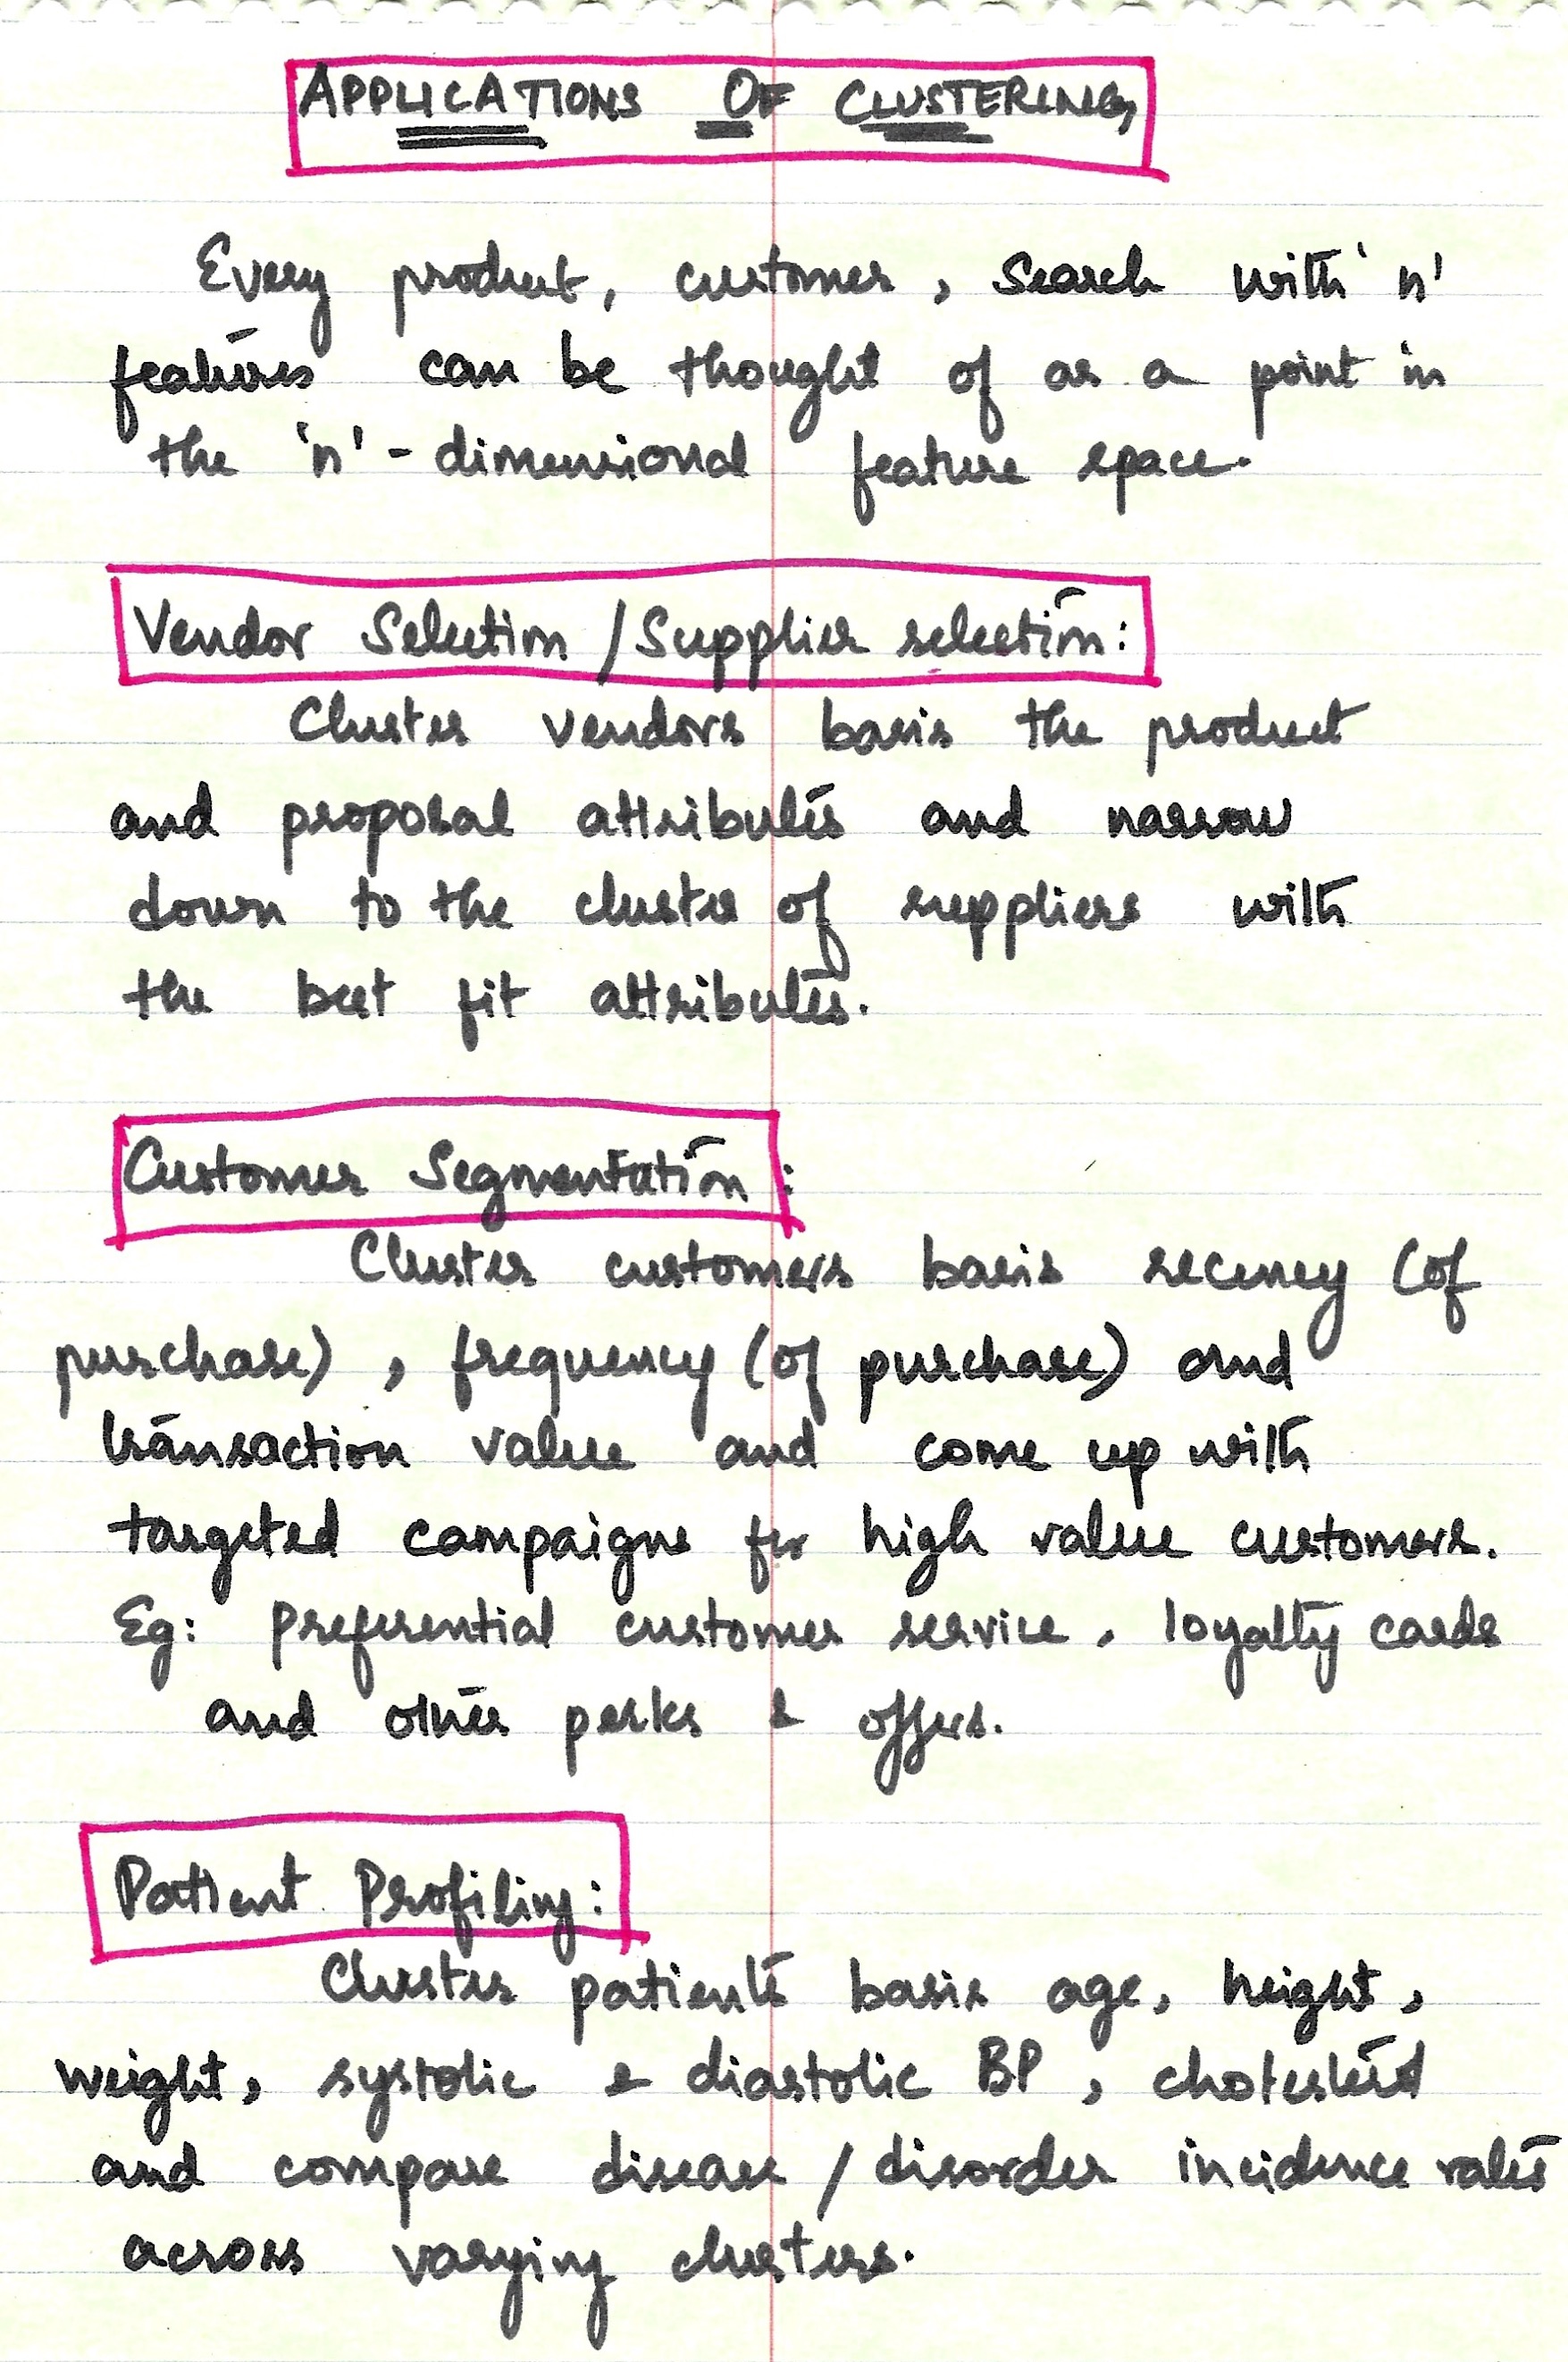 APPLICATIONS OF CLUSTERING
Every product, customer, search with 'n'
features can be thought of as a point in
the 'n'-dimensional feature space.
Vendor Selection / Supplier selection:
Cluster vendors basis the product
and proposal attributes and narrow
down to the cluster of suppliers with
the best fit attributes.
Customer Segmentation:
Cluster customers basis recency (of
purchase), frequency (of purchase) and
transaction value and come up with
targeted campaigns for high value customers.
Eg: preferential customer service, loyalty cards
and other perks & offers.
Patient Profiling:
Cluster patients basis age, height,
weight, systolic & diastolic BP, cholesterol
and compare disease / disorder incidence rates
across varying clusters.